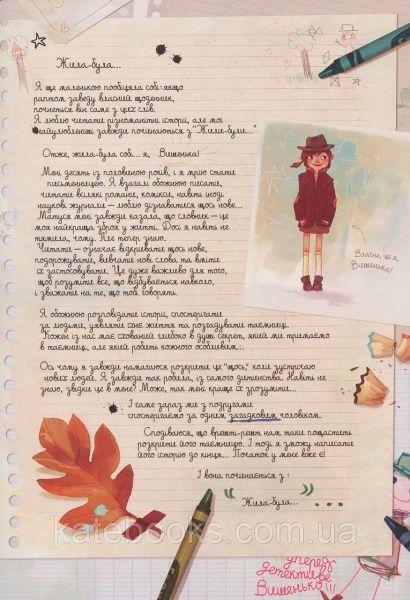 Жила-була...
Я ще маленькою пообіцяла собі: якщо
раптом заведу власний щоденник,
почнеться він саме з цих слів.
Я люблю читати різноманітні історії, але мої
найулюбленіші завжди починаються з "Жили-були..."
Отже, жила-була собі... я, Вишенька!
Мені десять із половиною років, і я мрію стати
письменницею. Я взагалі обожнюю писати,
читати всілякі романи, комікси, навіть іноді
наукові журнали — люблю дізнаватися щось нове...
Матуся мені завжди казала, що словник — це
моя найкраща зброя у житті. Досі я навіть не
тямила, чому. Але тепер знаю.
Читати — означає відкривати щось нове,
подорожувати, вивчати нові слова та вміти
їх застосовувати. Це дуже важливо для того,
щоб розуміти все, що відбувається навколо,
і зважати на те, що той говорить.
Я обожнюю розповідати історії, спостерігати
за людьми, уявляти їхнє життя та розгадувати таємниці.
Кожен із нас має схований глибоко в душі секрет, який ми тримаємо
в таємниці, але який робить кожного особливим...
Ось чому я завжди намагаюся розкрити це "щось", коли зустрічаю
нових людей. Я завжди так робила, із самого дитинства. Навіть не
знаю, звідки це в мене? Може, так мені краще їх зрозуміти...
І саме зараз ми з подругами
спостерігаємо за одним загадковим чоловіком.
Сподіваюся, що врешті-решт нам таки пощастить
розкрити його таємницю. І тоді я зможу написати
його історію до кінця... Початок у мене вже є!
І вона починається з:
" Жила-була... "
Власне, це я,
Вишенька!
katebooks.com.ua
Уперед,
детективе
Вишенько!!!